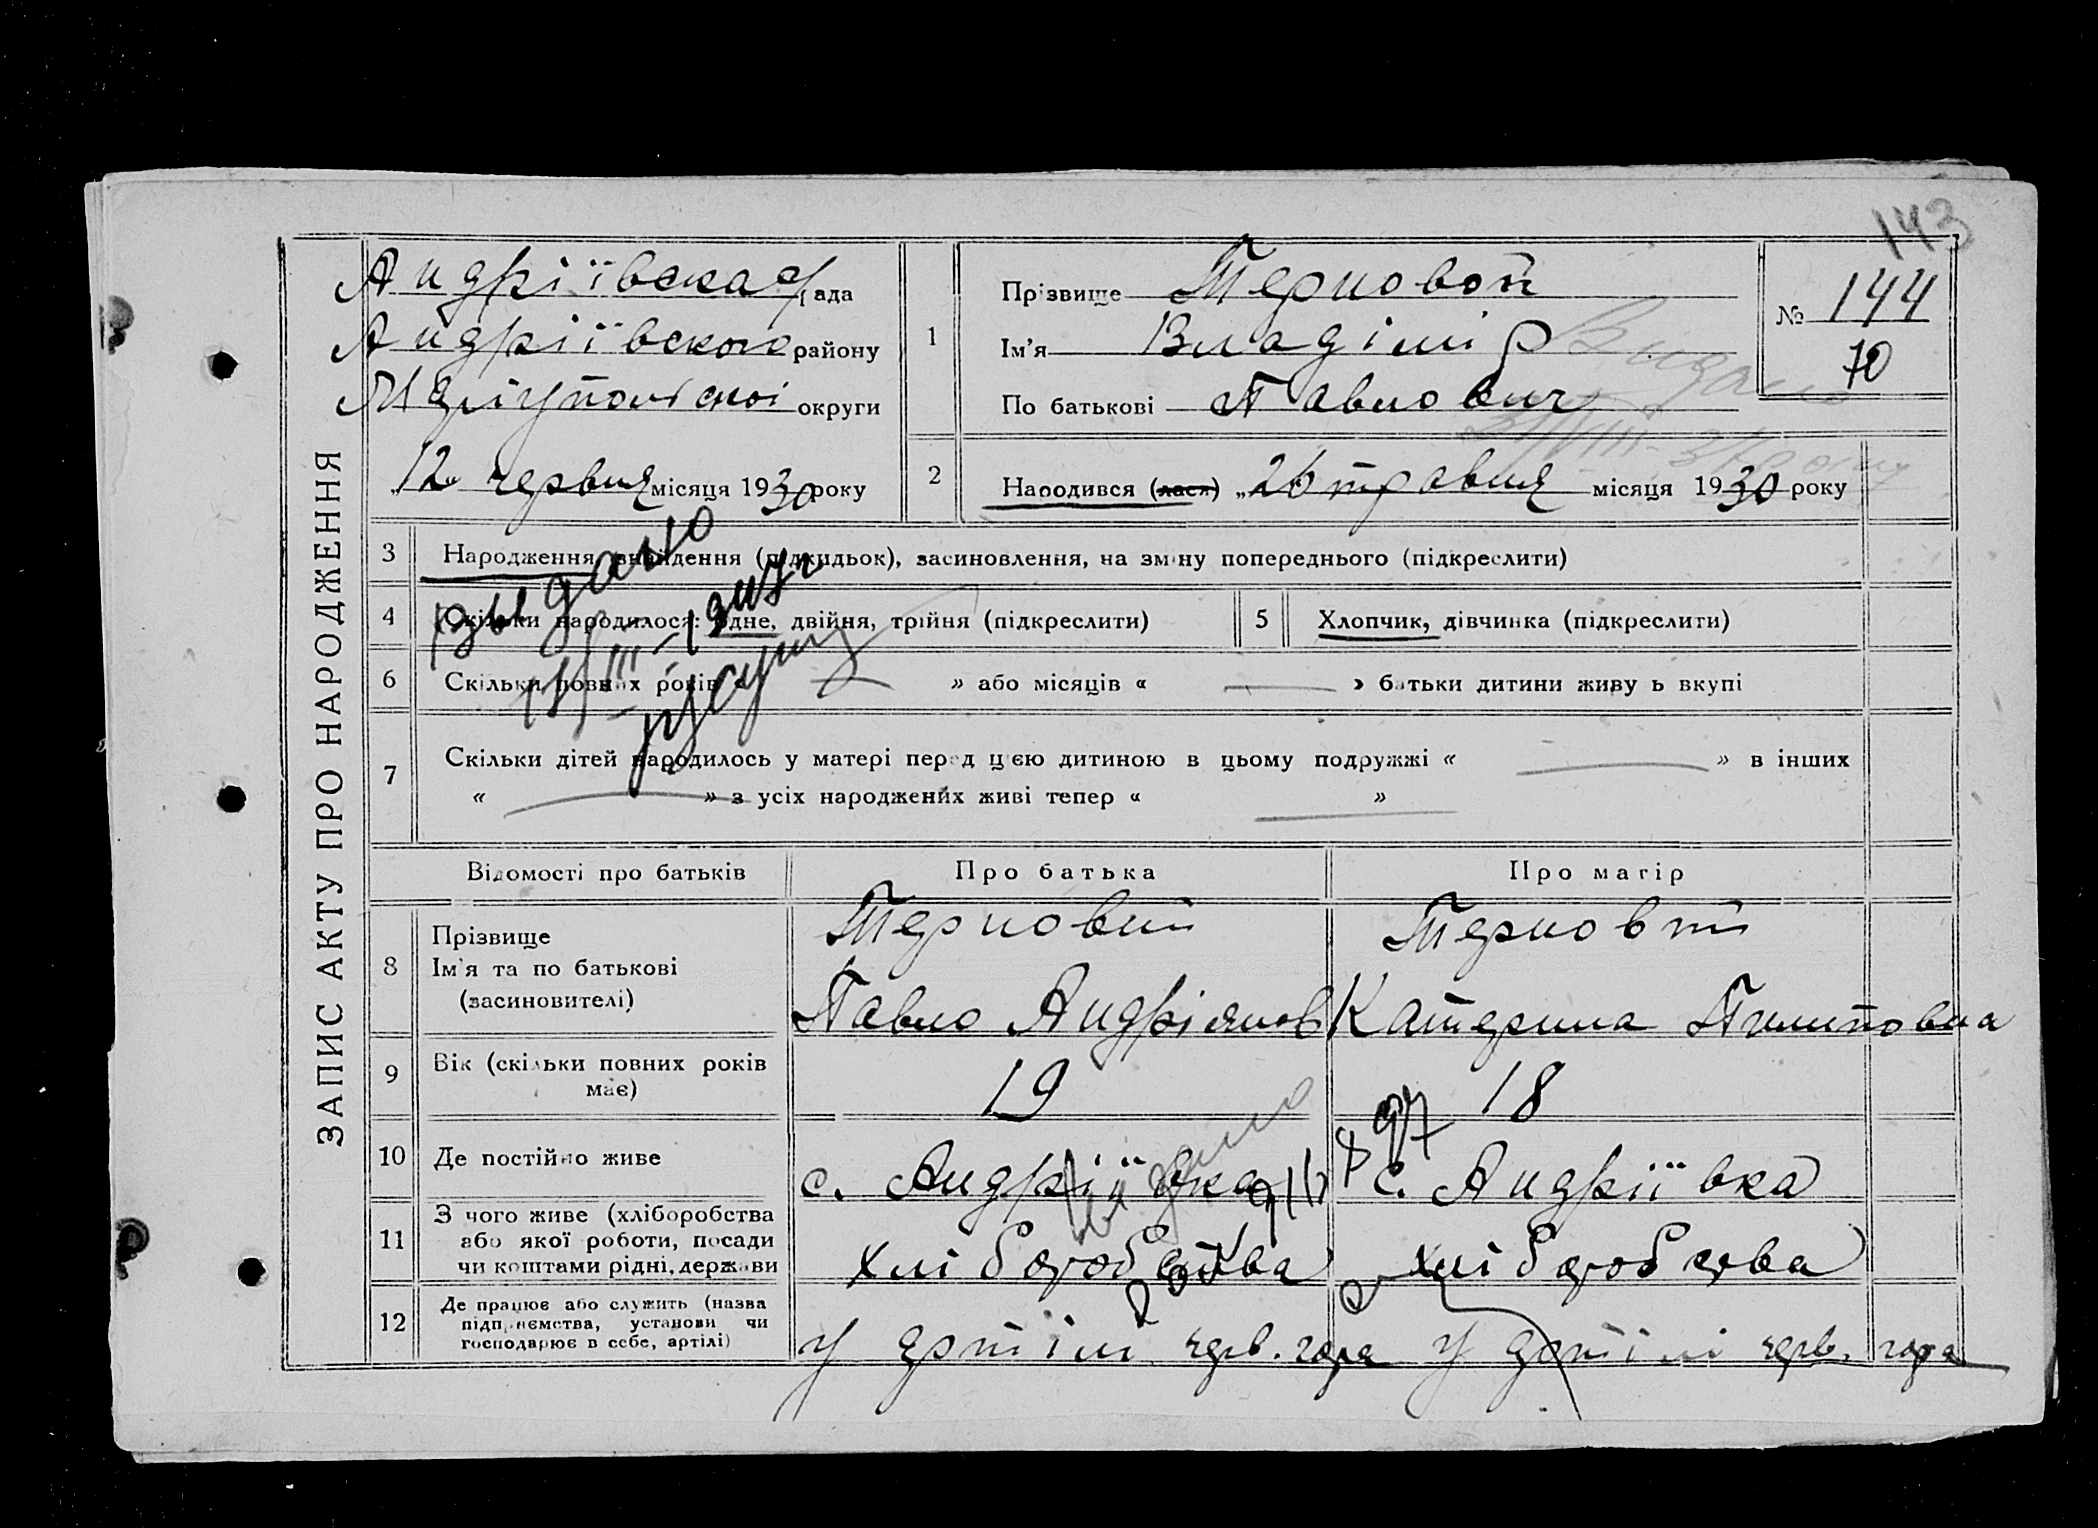 143
ЗАПИС АКТУ ПРО НАРОДЖЕННЯ
Андріївська рада
Андріївского району
Маріупольскої округи
„12 червня місяця 1930 року
1
Прізвище Терновой
Ім'я Владімір
По батькові Павлович
№ 144
70
Видано
2
Народився (лася) „26 травня місяця 1930 року
3 Народження, знайдення (підкидьок), засиновлення, на зміну попереднього (підкреслити)
4 Скільки народилося: одне, двійня, трійня (підкреслити)
5 Хлопчик, дівчинка (підкреслити)
Выдано
6 Скільки повних років « — » або місяців « — » батьки дитини живуть вкупі
7 Скільки дітей народилось у матері перед цією дитиною в цьому подружжі « — » в інших
« — » з усіх народжених живі тепер « — »
Відомості про батьків
Про батька
Про матір
8
Прізвище
Ім'я та по батькові
(засиновителі)
Терновий
Павло Андріянов
Катерина Пилиповна
9 Вік (скільки повних років
має)
19
18
10 Де постійно живе
с. Андріївка
с. Андріївка
11 З чого живе (хліборобства
або якої роботи, посади
чи коштами рідні, держави
хліборобства
хліборобства
12 Де працює або служить (назва
підприємства, установи чи
господарює в себе, артілі)
у артілі черв. гора
у артілі черв. гора